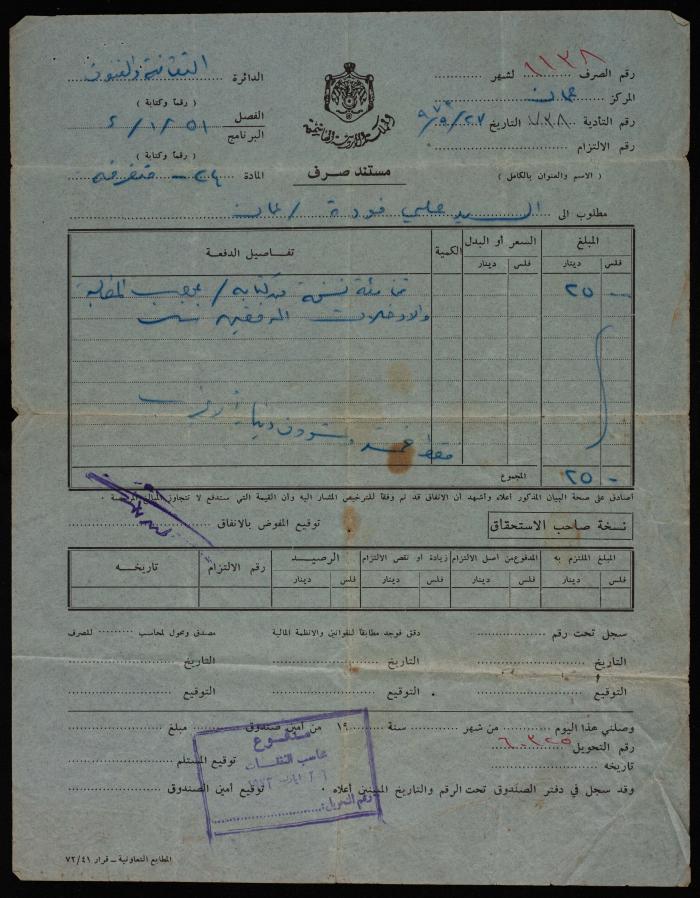 رقم الصرف ١١٣٨ لشهر
المركز عمان
رقم التأدية ٧٣٨ التاريخ ٩/٢٧
رقم الالتزام
(الاسم والعنوان بالكامل)
المملكة الأردنية الهاشمية
مستند صرف
الدائرة الثقافة والفنون
(رقما وكتابة)
الفصل
البرنامج ٥١/١/٢
(رقما وكتابة)
المادة ٢٤ - متفرقة
مطلوب الى السيد علي فودة / عمان
المبلغ السعر أو البدل الكمية تفاصيل الدفعة
فلس دينار فلس دينار
- ٢٥ ثمن مئة نسخة من كتابه / بموجب المطالبة
والادخالات المرفقين
فقط خمسة وعشرون دينار
- ٢٥ المجموع
أصادق على صحة البيان المذكور أعلاه وأشهد أن الانفاق قد تم وفقا للترخيص المشار اليه وأن القيمة التي ستدفع لا تتجاوز المبالغ المرخصة .
نسخة صاحب الاستحقاق
توقيع المفوض بالانفاق
المبلغ الملتزم به المدفوع من أصل الالتزام زيادة أو نقص الالتزام الرصيد رقم الالتزام تاريخه
فلس دينار فلس دينار فلس دينار فلس دينار
سجل تحت رقم دقق فوجد مطابقا للقوانين والانظمة المالية مصدق ومحول لمحاسب للصرف
التاريخ التاريخ التاريخ
التوقيع التوقيع التوقيع
وصلني هذا اليوم من شهر سنة ١٩ من أمين صندوق مبلغ
رقم التحويل ٦٠٣٢٥
توقيع المستلم
تاريخه
وقد سجل في دفتر الصندوق تحت الرقم والتاريخ المبينين أعلاه . توقيع أمين الصندوق
مدفوع
محاسب النفقات
رقم التحويل:
المطابع التعاونية - قرار ٧٢/٤١